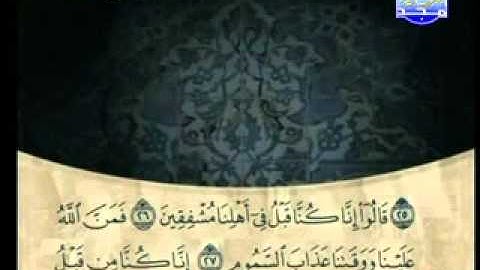 مجد
٢٥ قَالُوٓا۟ إِنَّا كُنَّا قَبْلُ فِىٓ أَهْلِنَا مُشْفِقِينَ ٢٦ فَمَنَّ ٱللَّهُ
عَلَيْنَا وَوَقَىٰنَا عَذَابَ ٱلسَّمُومِ ٢٧ إِنَّا كُنَّا مِن قَبْلُ